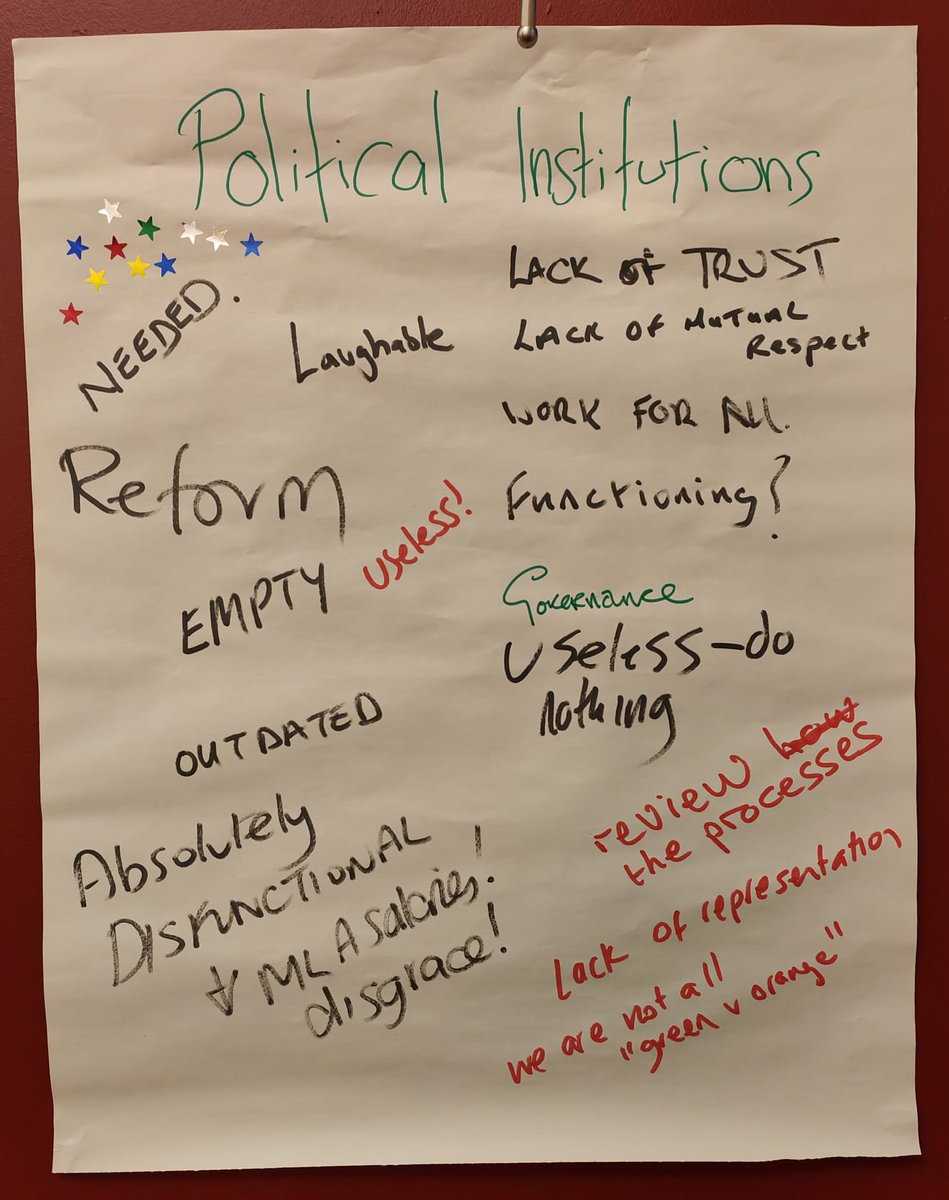 Political Institutions
NEEDED.
Laughable
LACK OF TRUST
LACK OF MUTUAL
Respect
WORK FOR ALL.
Reform
Functioning?
EMPTY
useless!
Governance
useless-do
nothing
OUTDATED
review how
the processes
Absolutely
DISFUNCTIONAL
+ MLA salaries!
disgrace!
Lack of representation
we are not all
"green v orange"